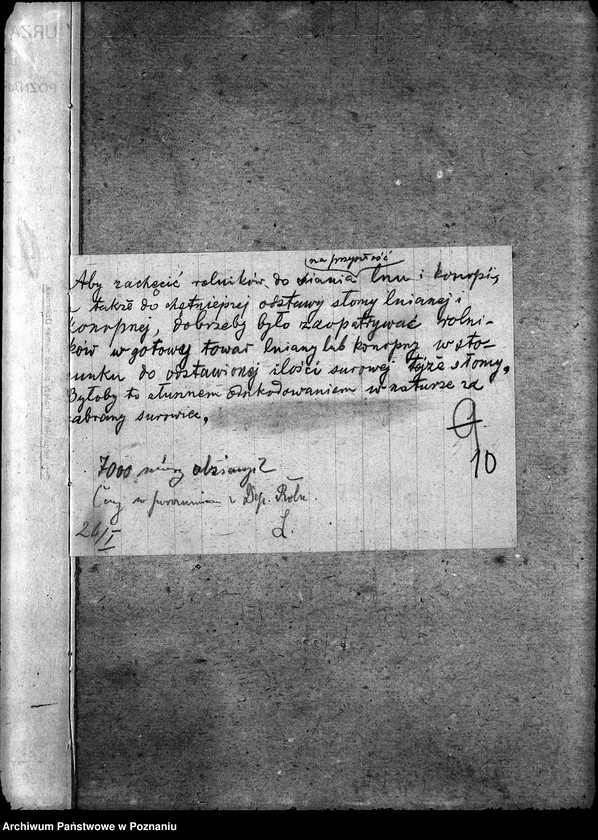 URZĄ
POZNAŃ
na przyszłość
Aby zachęcić rolników do siania lnu i konopi,
a także do chętniejszej odstawy słomy lnianej i
konopnej, dobrzeby było zaopatrywać rolni-
ków w gotowy towar lniany lub konopny w sto-
sunku do odstawionej ilości surowej tejże słomy.
Byłoby to słusznem odszkodowaniem w naturze za
zabrany surowiec.
G
10
7000 mórg obsianych?
Czy w porozumieniu z Dep. Roln.
26/I
L.
Archiwum Państwowe w Poznaniu